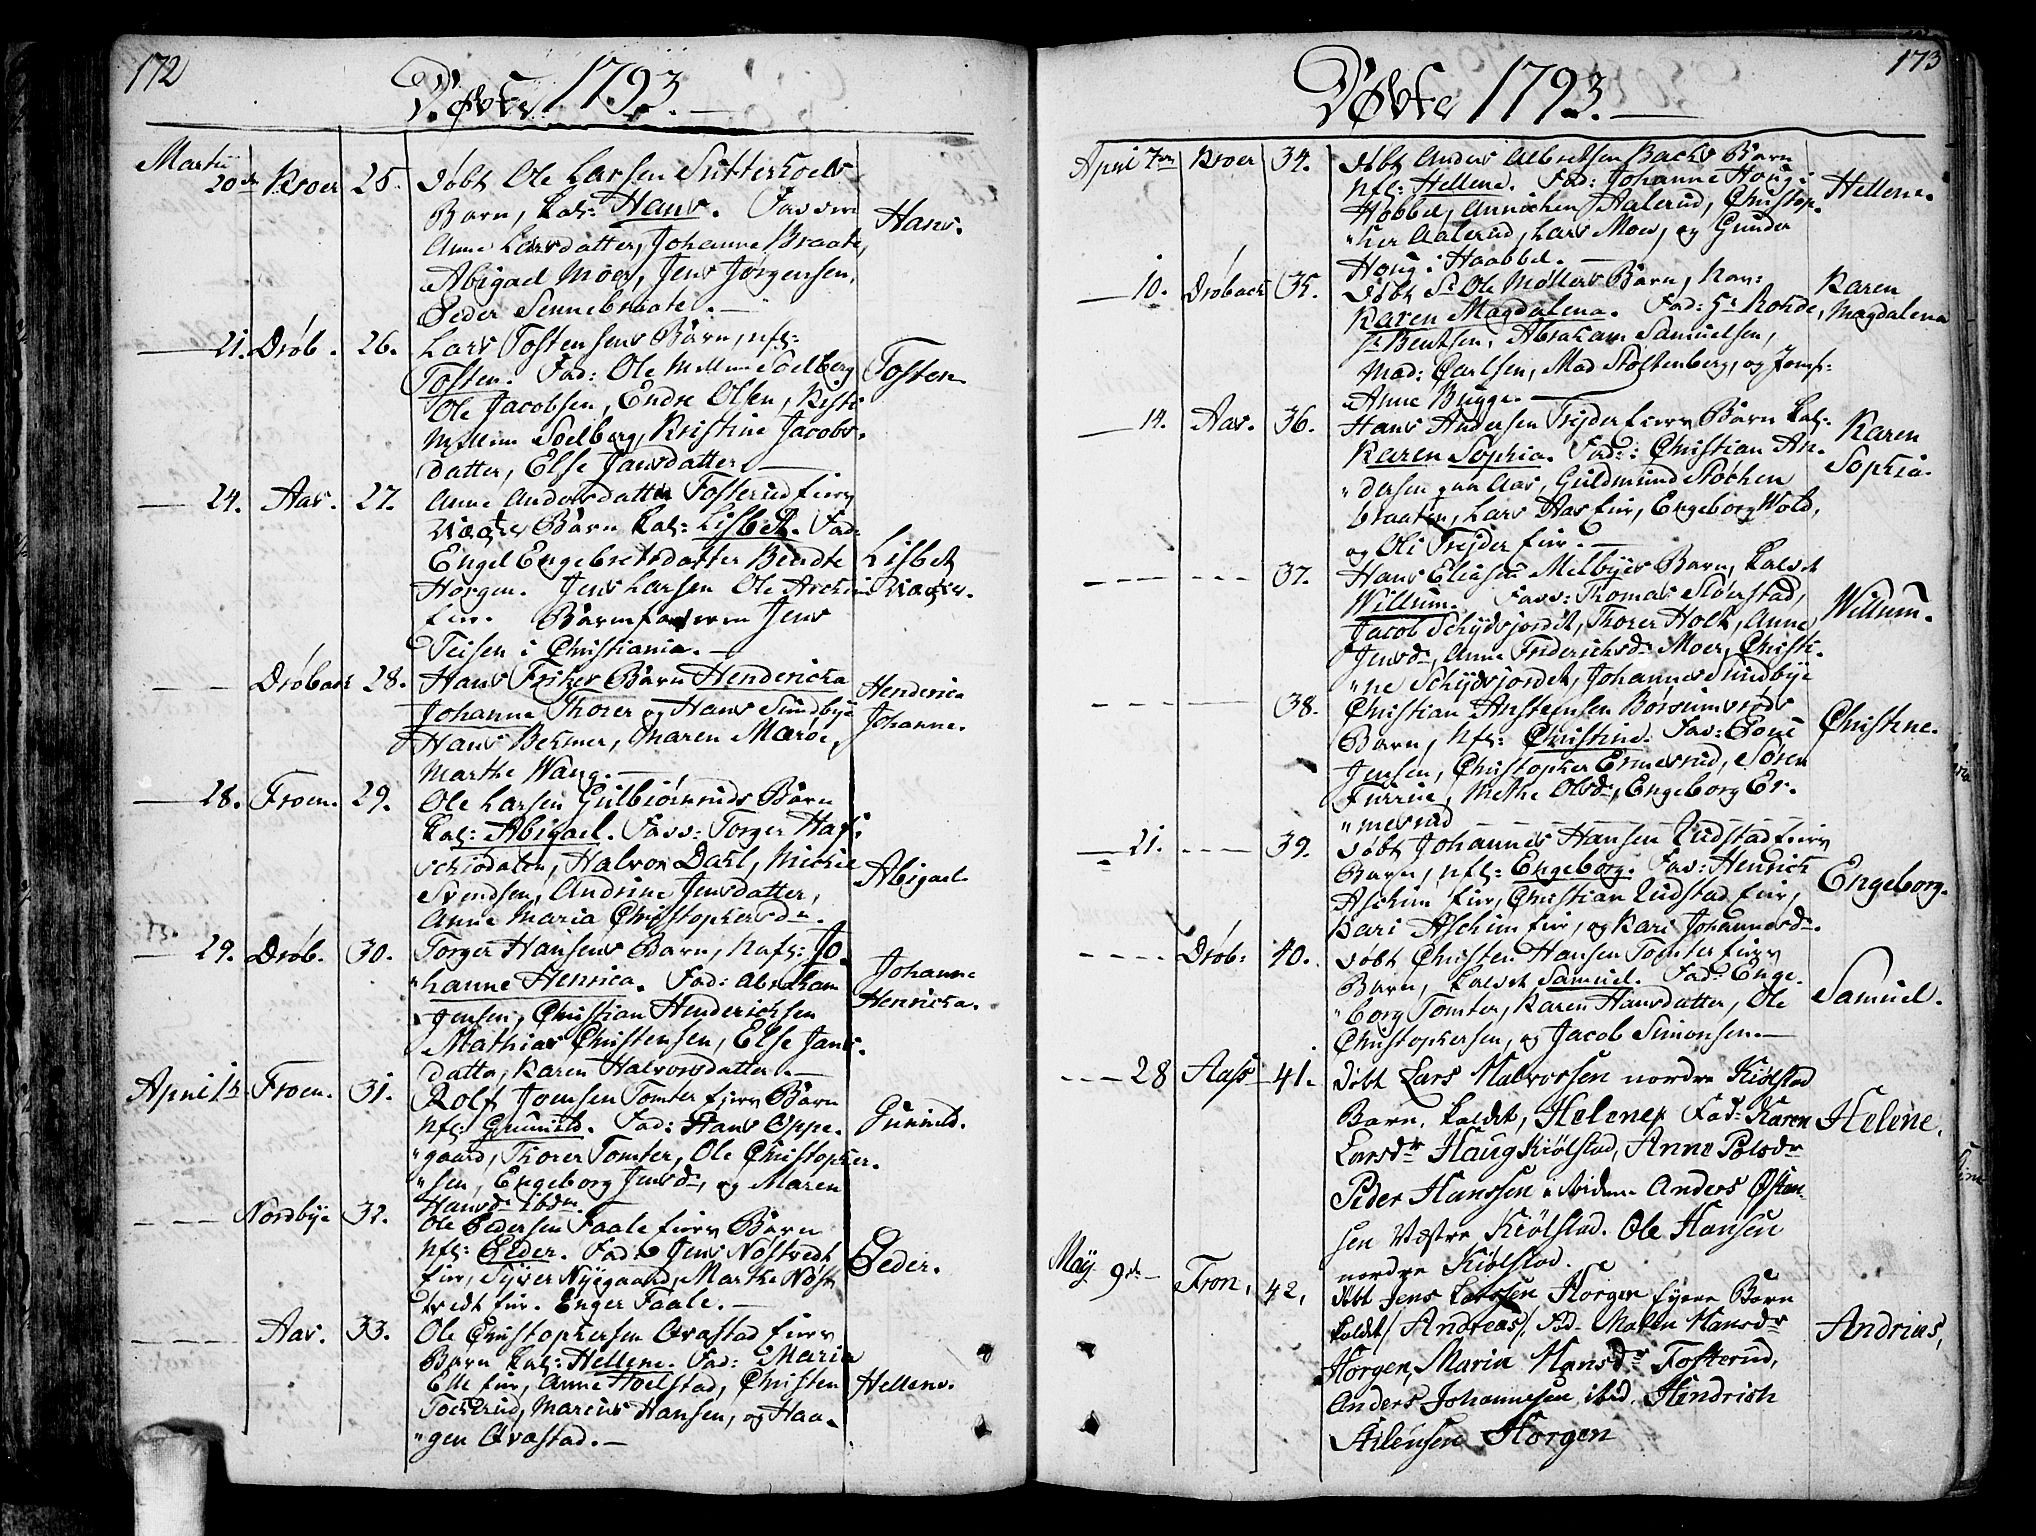 172
Døbte 1793.
Martii
20de Kroer 25. Døbt Ole Larsen Sutterhoels
Barn, kal: Hans. Fassere
Anne Larsdatter, Johanne Braate,
Abigael Moer, Jens Jørgensen,
Peder Sennebraate.
Hans.
21. Drøb. 26. Lars Tostensens Barn, nfl:
Tosten. Fad: Ole Soelberg
Ole Jacobsen, Endre Olsen, Kisti
Soelberg, Kristine Jacobs-
datter, Else Jansdatter
Tosten
24. Aas. 27. Anne Andersdatter Fosterud eiers
Uægte Barn kal: Lisbet. Fad:
Engel Engebretsdatter Bendte
Horgen. Jens Larsen Ole Aschim
eier. Barnefaderen Jens
Teisen i Christiania.
Lisbet
Uægte.
Drøbach 28. Hans Barn Hendericka
Johanne Thorer og Hans Sundbye
Hans Bekmer, Maren Maroe,
Marthe Wang.
Henderica
Johanne.
28. Froen. 29. Ole Larsen Gulbiørnruds Barn
kal: Abigael. Fass: Torger Haf-
schiodalen, Halvor Dahl, Mickie
Svendsen, Andrine Jensdatter,
Anne Maria Christophersdr.
Abigael
29. Drøb. 30. Torger Hansens Barn, Nafl: Jo-
"hanne Henrica. Fad: Abraham
Jensen, Christian Henderichsen
Mathias Christensen, Else Jans-
datter, Karen Halvorsdatter.
Johanne
Henricka.
April 1te Froen. 31. Rolf Joensen Tomter eiers Barn
nfl: Gunnild. Fad: Hans Oppe-
"gaard, Thorer Tomter, Ole Christopher-
"sen, Engeborg Jensdr, og Maren
Hansdr ibdm.
Gunnild.
Nordbye 32. Ole Pedersen Faale eiers Barn
nfl: Peder. Fad: Jens Nøstvedt
eier, Syver Nyegaard, Marthe Nøst
tvedt eier. Enger Faale.
Peder.
Aas. 33. Ole Christophersen Qvæstad eiers
Barn kal: Hellene. Fad: Maria
Elle eier, Anne Hoelstad, Christen
Toesterud, Marcus Hansen, og Haa-
"gen Qvæstad.
Hellene.
173
Døbte 1793.
April 7de Kroer 34. Døbt Anders Albretsen Bachs Barn
nfl: Hellene. Fad: Johanne Houg i
Hobbel, Annichen Halerud, Christop-
"her Aalerud, Lars Moer, og Gunder
Houg i Haabbel.
Hellene.
10. Drøbach 35. Døbt Sr Ole Møllers Barn, nav:
Karen Magdalena. Fad: Sr Rohde,
Sr Bentsen, Abraham Samuelsen,
Mad: Carlsen, Mad Stoltenberg, og Jomfr:
Anne Bugge.
Karen
Magdalena
14. Aas. 36. Hans Andersen Trejder eiers Barn kal:
Karen Sophia. Fad: Christian An-
"dersen paa Aas, Guldmund Støchen
braaten, Lars Aas eier, Engeborg Wold,
og Oli Trejder eier.
Karen
Sophia.
37. Hans Eliasens Melbyes Barn, kaldet
Willum. Fass: Thomas Sloerstad,
Jacob Schydsjordet, Thorer Holt, Anne
Jensdr, Anne Friderichsdr Moer, Christi-
"ne Schydsjordet, Johannes Sundbye
Willum.
38. Christian Anstensen Børsumsrøds
Barn, nfl: Christine. Fas: Poul
Jensen, Christopher Ermesrud, Søren
Furrue, Methe Olsdr, Engeborg Er-
"mesrud
Christine.
21. 39. Døbt Johannes Hansen Rudstad eiers
Barn, nfl: Engeborg. Fas: Henrich
Aschim eier, Christian Rudstad eier,
Kari Aschim eier, og Kari Johannesdr.
Engeborg.
Drøb: 40. Døbt Christen Hansen Tomter eiers
Barn, kaldet Samuel. Fad: Enge-
"borg Tomter, Karen Hansdatter, Ole
Christophersen, og Jacob Simonsen.
Samuel.
28 Aass 41. Døbt Lars Halvorsen nordre Kiølstad
Barn, kaldet, Helene, Fad: Karen
Larsdr Haug Kiølstad, Anne Polsdr
Peder Hanssen Anders Østen-
sen Vestre Kiølstad. Ole Hansen
nordre Kiølstad.
Helene.
May 9de Fron, 42, døbt Jens Larssen Horgen eyere Barn
kaldet Andreas, Fad. Malen Hansdr
Horgen, Maria Hansdr Fosterud,
Anders Johannesen ibid. Hendrich
Horgen
Andrias,